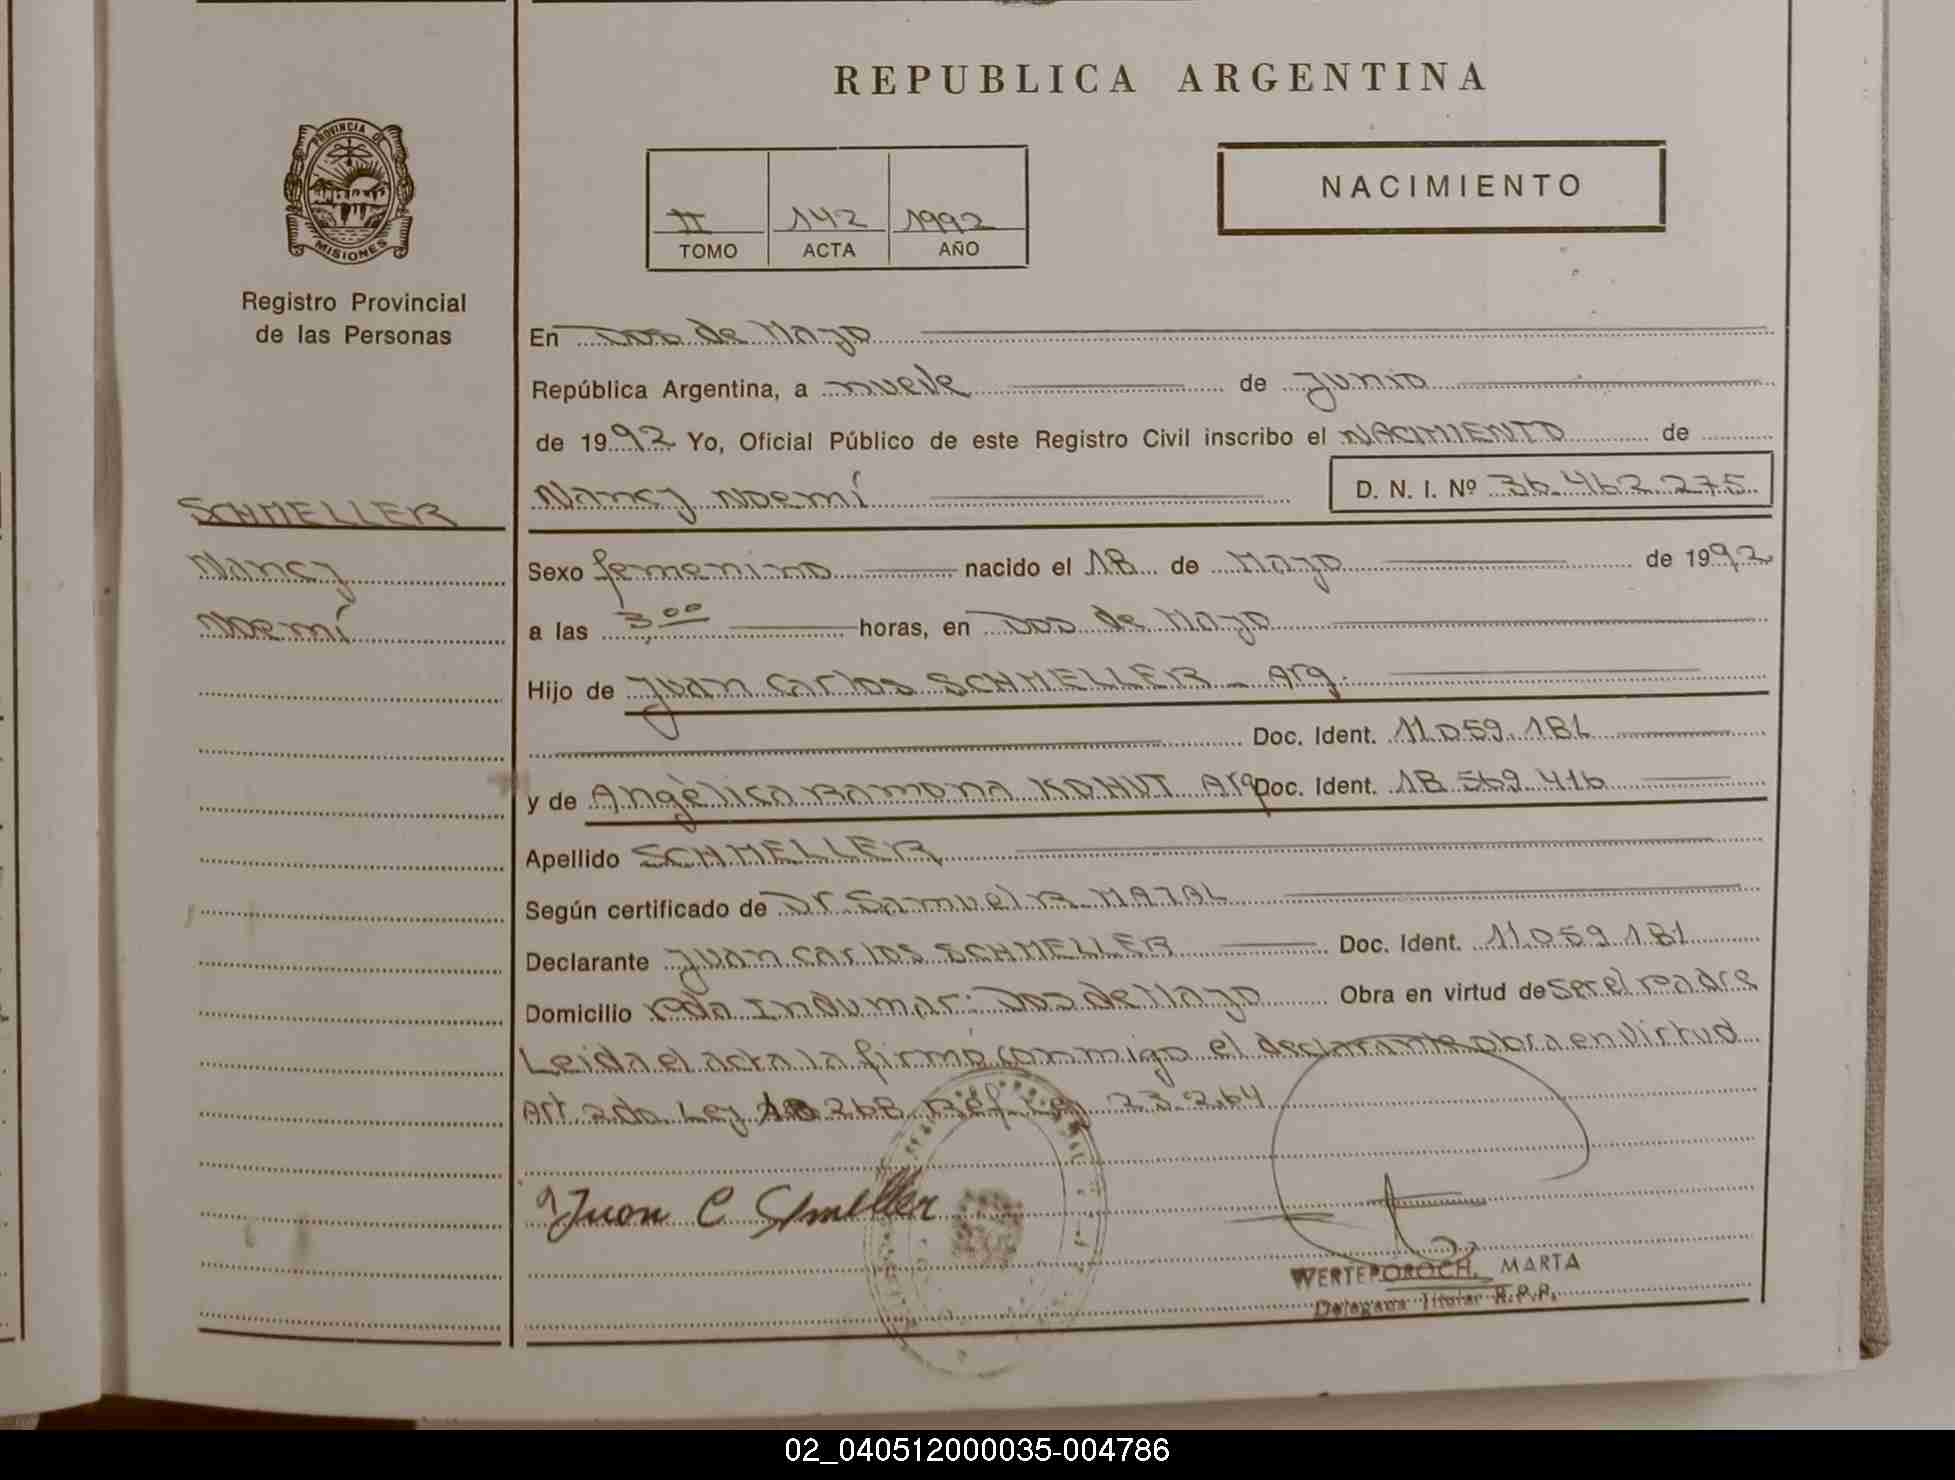 REPUBLICA ARGENTINA
PROVINCIA DE
MISIONES
Registro Provincial
de las Personas
NACIMIENTO
II 142 1992
TOMO ACTA AÑO
En Dos de Mayo
República Argentina, a nueve de Junio
de 1992 Yo, Oficial Público de este Registro Civil inscribo el NACIMIENTO de
Nancy Noemí D. N. I. Nº 36.462.275
SCHMELLER
Nancy
Noemí
Sexo femenino nacido el 18 de Mayo de 1992
a las 3,00 horas, en Dos de Mayo
Hijo de Juan Carlos SCHMELLER - Arg.
Doc. Ident. 11.059.181
y de Angèlica Ramona KOHUT Arg Doc. Ident. 18.569.416
Apellido SCHMELLER
Según certificado de Dr. Samuel R.
Declarante Juan Carlos SCHMELLER Doc. Ident. 11.059.181
Domicilio Indumar: Dos de Mayo Obra en virtud de ser el padre
Leida el acta la firmó conmigo el declarante obra en virtud
Art. 2do. Ley 18.268 Ley 23.264
Juan C Schmeller
WERTEPOROCH, MARTA
Delegada Titular R.P.P.
02_040512000035-004786